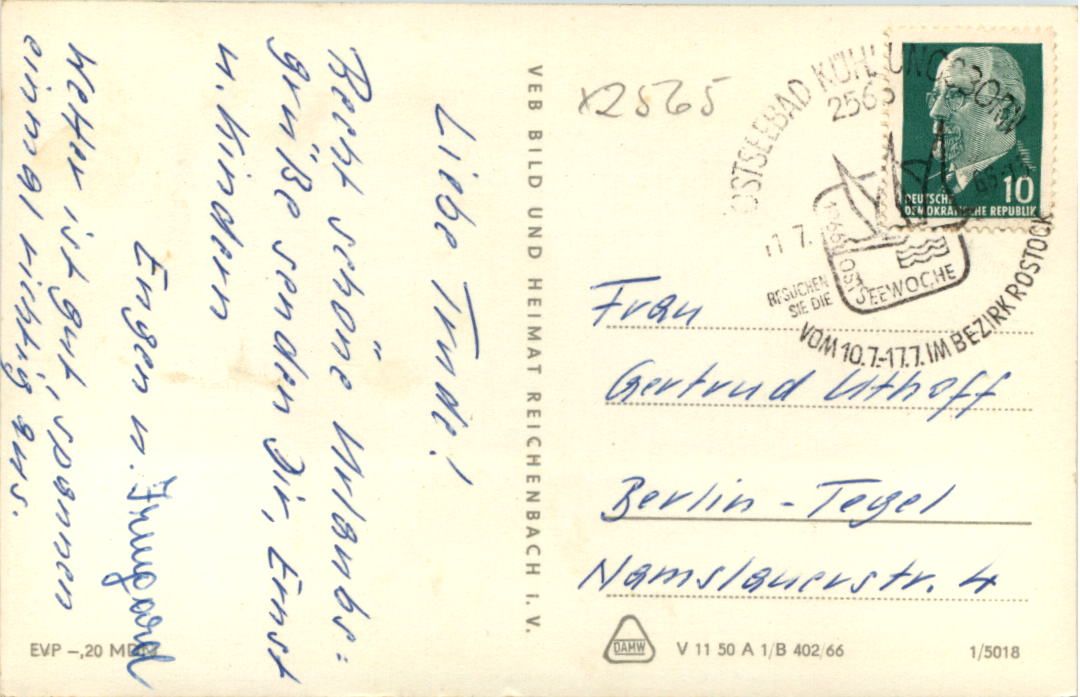 Liebe Trude!
Recht schöne Urlaubs=
grüße senden Dir, Ernst
u. Kindern
Eugen u. Irmgard
Wetter ist gut, spannen
einmal richtig aus.
VEB BILD UND HEIMAT REICHENBACH I. V.
EVP –,20 MDN
x2565
OSTSEEBAD KÜHLUNGSBORN
2565
11 7.
BESUCHEN
SIE DIE
1966 OSTSEEWOCHE
VOM 10.7.-17.7. IM BEZIRK ROSTOCK
10
DEUTSCHE
DEMOKRATISCHE REPUBLIK
Frau
Gertrud Uthoff
Berlin - Tegel
Namslauerstr. 4
DAMW
V 11 50 A 1/B 402/66
1/5018